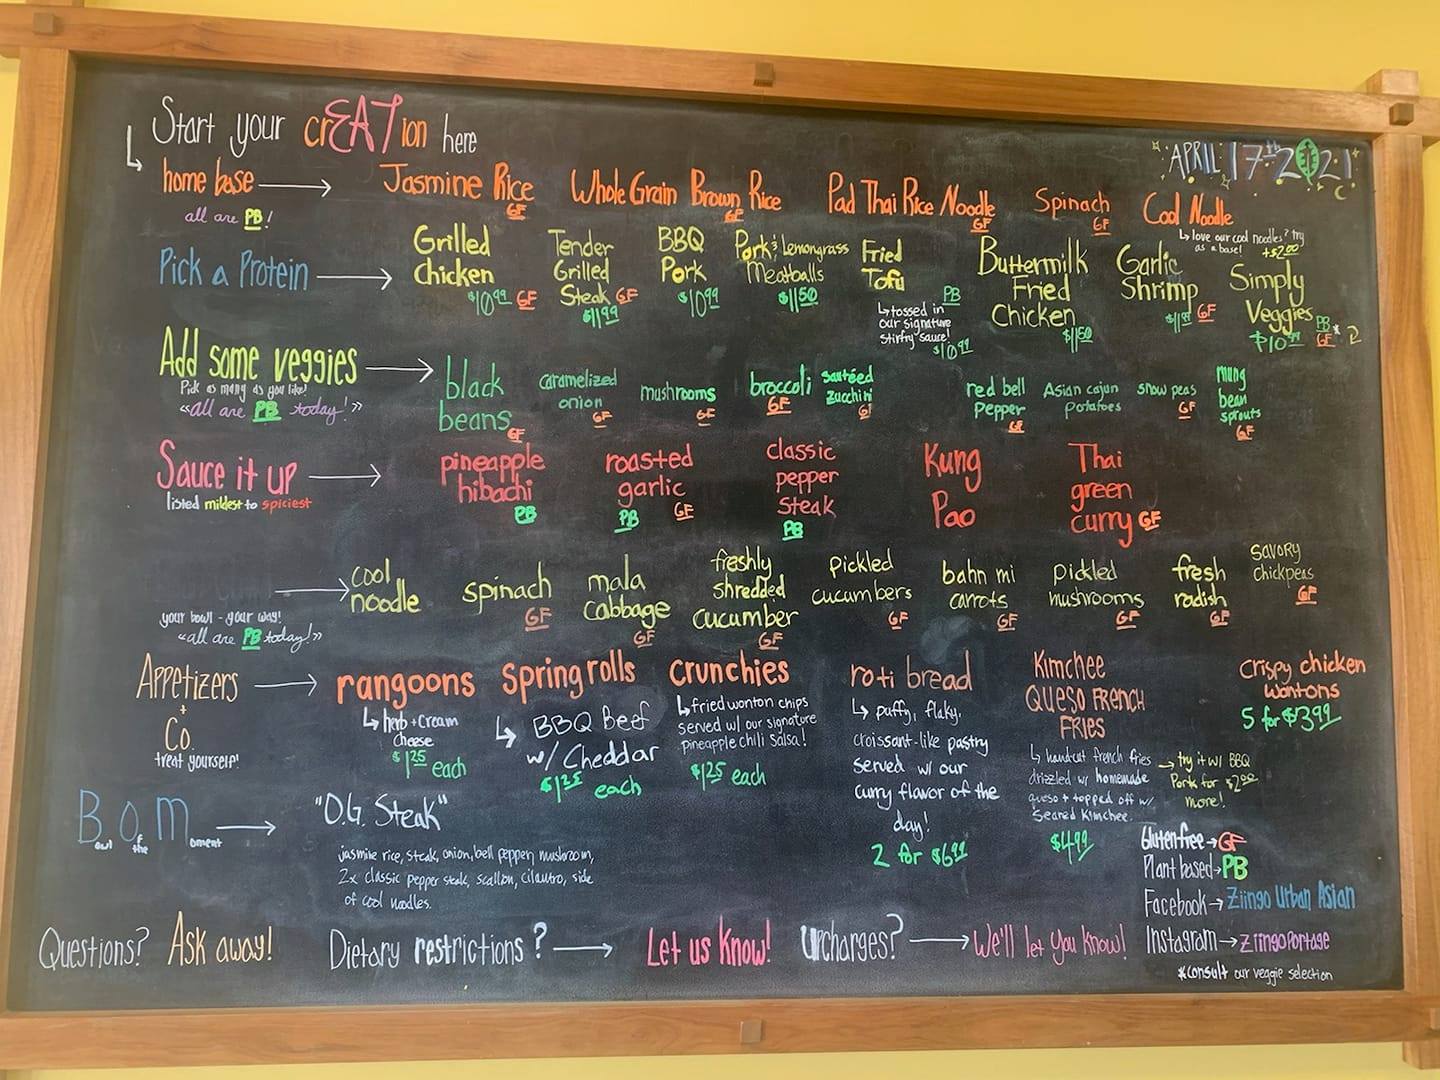 Start your crEATion here
APRIL 17th 2021
home base
all are PB!
Jasmine Rice
GF
Whole Grain Brown Rice
GF
Pad Thai Rice Noodle
GF
Spinach
GF
Cool Noodle
love our cool noodles? try
as a base! +$2.00
Pick a Protein
Grilled
Chicken
$10.99 GF
Tender
Grilled
Steak GF
$11.99
BBQ
Pork
$10.99
Pork & Lemongrass
Meatballs
$11.50
Fried
Tofu
PB
tossed in
our signature
stirfry sauce!
$10.99
Buttermilk
Fried
Chicken
$11.50
Garlic
Shrimp
$11.99 GF
Simply
Veggies
$10.99 PB
GF *
Add some veggies
Pick as many as you like!
"all are PB today!"
black
beans
GF
caramelized
onion
GF
mushrooms
GF
broccoli
GF
sautéed
zucchini
red bell
pepper
GF
Asian cajun
potatoes
snow peas
GF
mung
bean
sprouts
GF
Sauce it up
listed mildest to spiciest
pineapple
hibachi
PB
roasted
garlic
PB GF
classic
pepper
steak
PB
Kung
Pao
Thai
green
curry GF
your bowl - your way!
"all are PB today!"
cool
noodle
spinach
GF
mala
cabbage
GF
freshly
shredded
cucumber
GF
Pickled
cucumbers
GF
bahn mi
carrots
GF
pickled
mushrooms
GF
fresh
radish
GF
savory
chickpeas
GF
Appetizers
+
Co.
treat yourself!
rangoons
herb + cream
cheese
$1.25 each
Spring rolls
BBQ Beef
w/ Cheddar
$1.25 each
crunchies
fried wonton chips
served w/ our signature
pineapple chili salsa!
$1.25 each
roti bread
puffy, flaky,
croissant-like pastry
served w/ our
curry flavor of the
day!
2 for $6.99
Kimchee
Queso French
Fries
handcut french fries
drizzled w/ homemade
queso + topped off w/
seared Kimchee.
$4.99
try it w/ BBQ
Pork for $2.00
more!
crispy chicken
wontons
5 for $3.99
B.O.M
owl of the oment
"O.G. Steak"
jasmine rice, steak, onion, bell pepper, mushroom,
2x classic pepper steak, scallion, cilantro, side
of cool noodles.
Gluten free → GF
Plant based → PB
Facebook → Ziingo Urban Asian
Instagram → ZiingoPortage
*consult our veggie selection
Questions? Ask away!
Dietary restrictions? → Let us know!
urcharges? → We'll let you know!